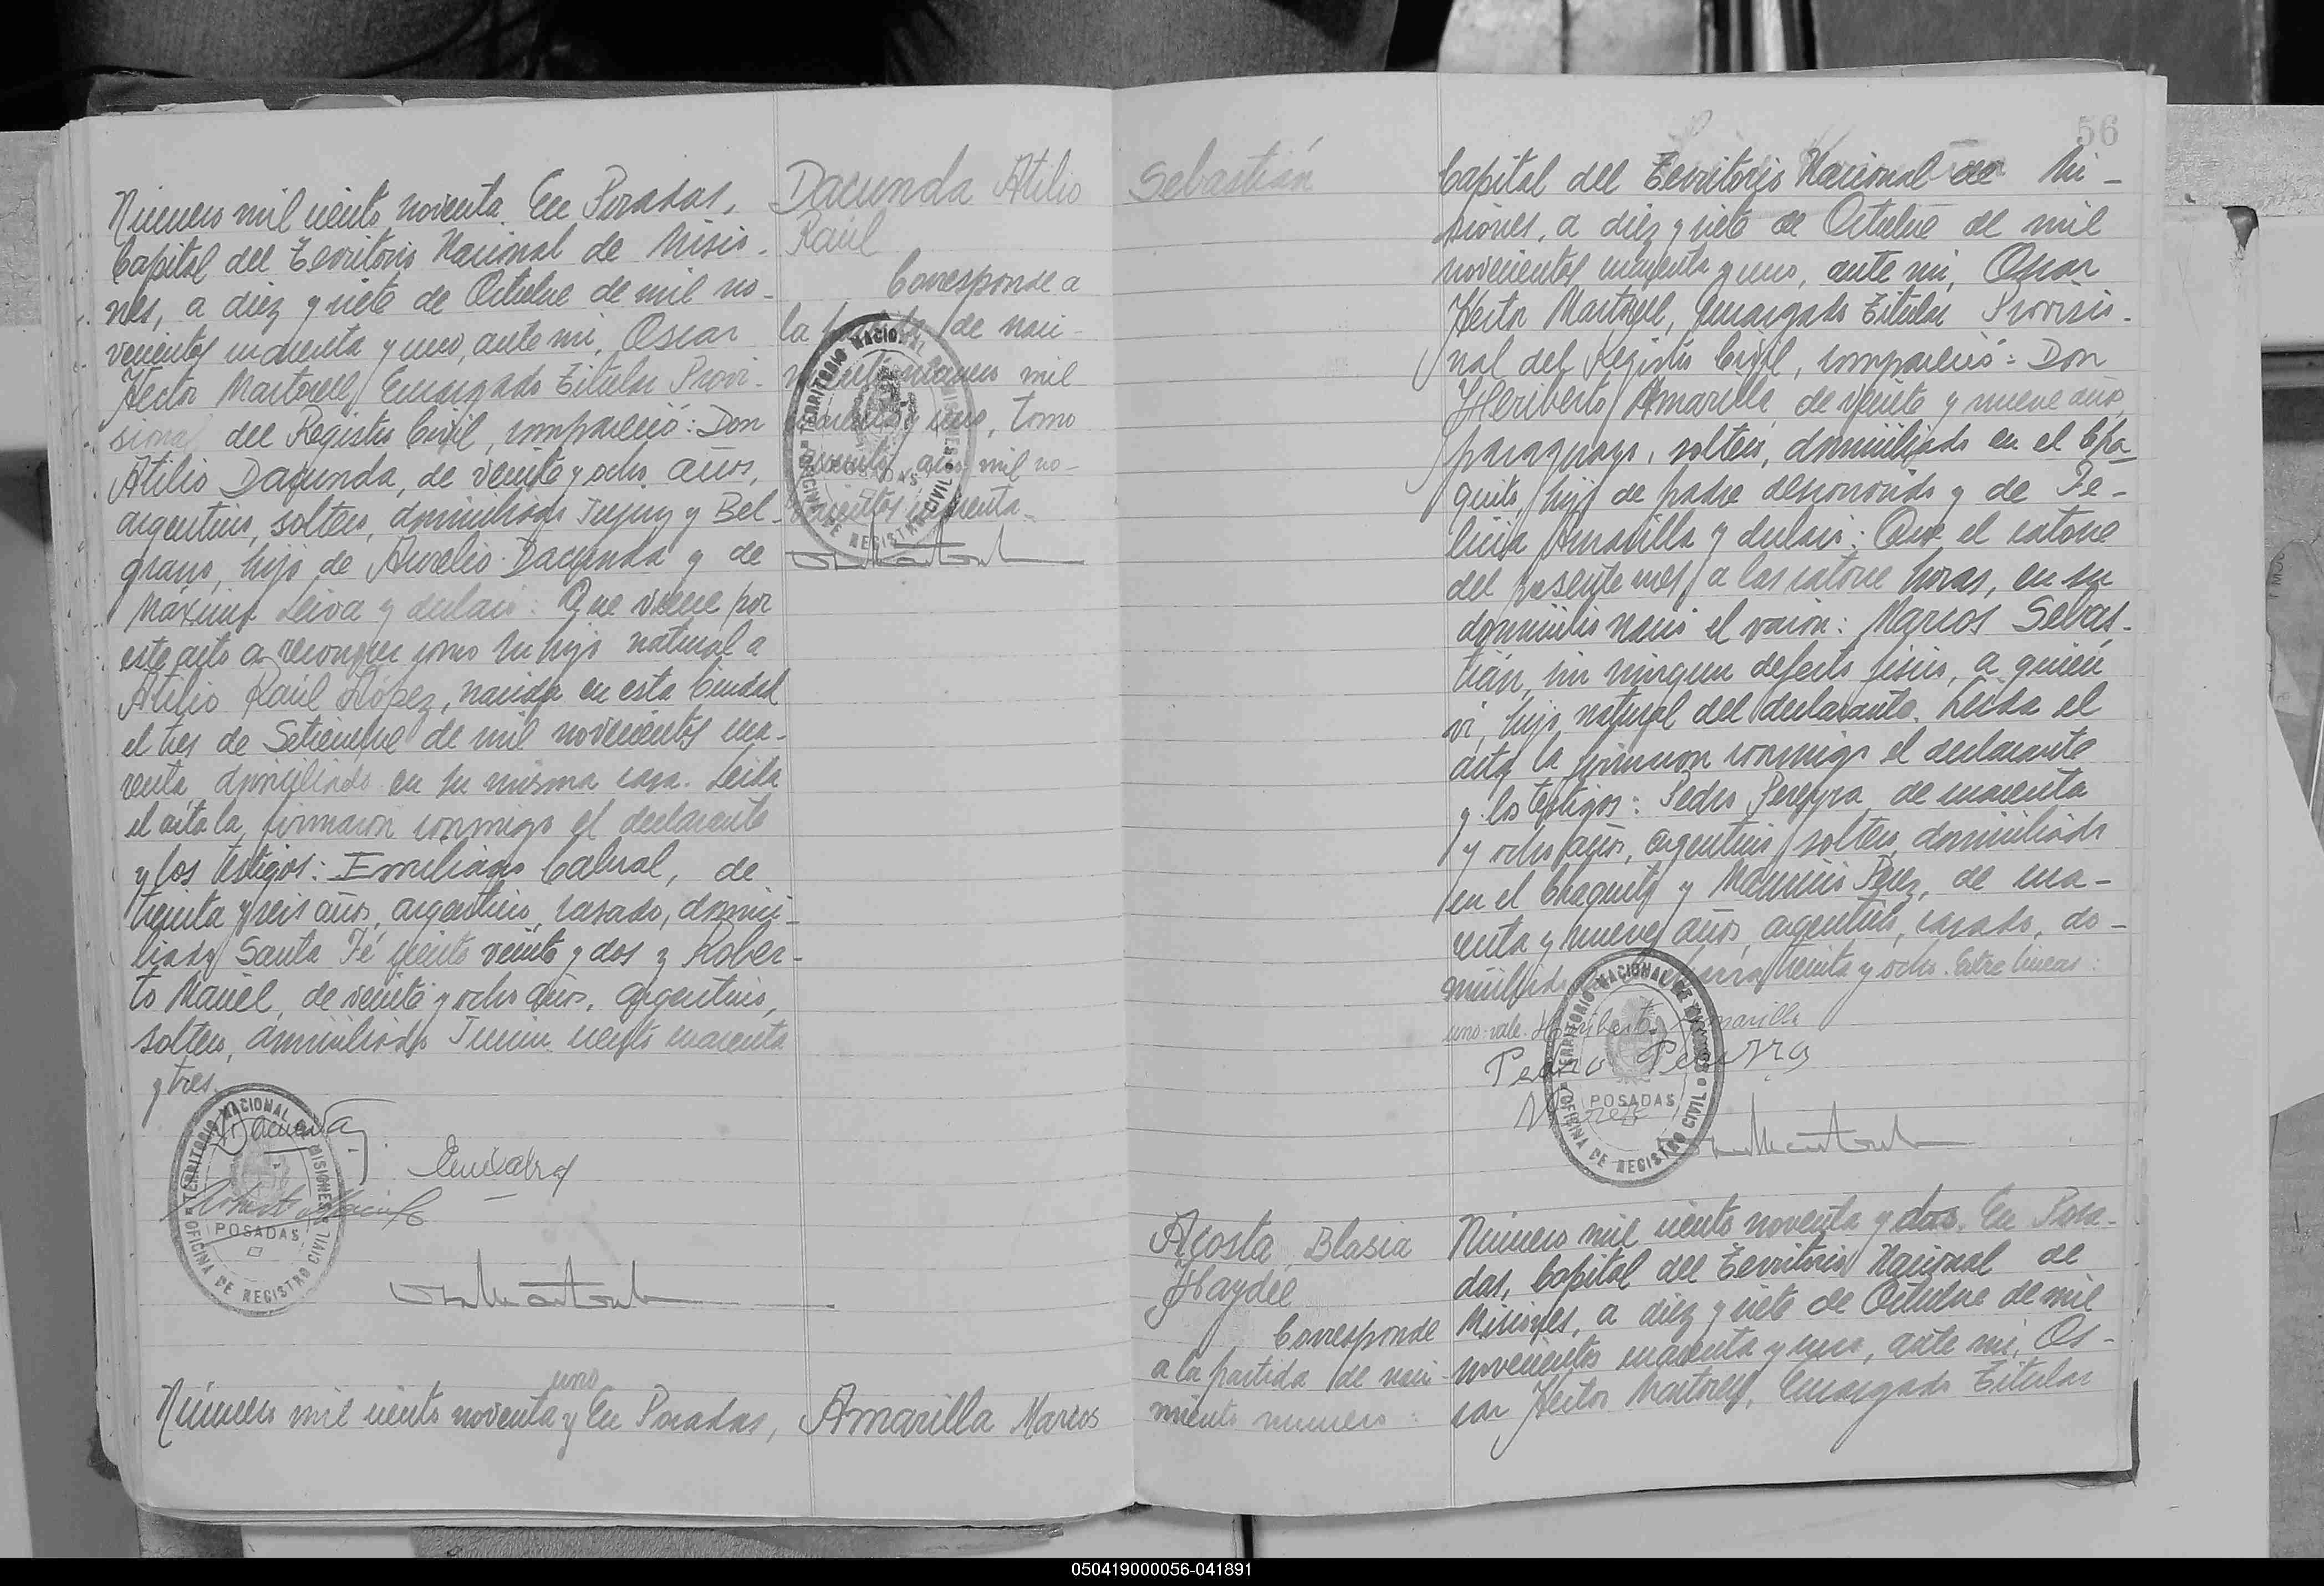 Número mil ciento noventa. En Posadas,
Capital del Territorio Nacional de Misio-
nes, a diez y siete de Octubre de mil no-
vecientos cuarenta y uno, ante mi, Oscar
Héctor Martorell, Encargado Titular Provi-
sional del Registro Civil, compareció: Don
Atilio Dacunda, de veinte y ocho años,
argentino, soltero, domiciliado Jujuy y Bel-
grano, hijo de Aurelio Dacunda y de
Máxima Leiva y declaró: Que viene por
este acto a reconocer como su hijo natural a
Atilio Raúl López, nacido en esta Ciudad
el tres de Setiembre de mil novecientos cua-
renta, domiciliado en su misma casa. Leída
el acta la firmaron conmigo el declarante
y los testigos: Emiliano Cabral, de
treinta y seis años, argentino, casado, domici-
liado Santa Fé ciento veinte y dos y Rober-
to Maciel, de veinte y ocho años, argentino,
soltero, domiciliado Junin ciento cuarenta
y tres.
Dacunda
TERRITORIO NACIONAL DE MISIONES
POSADAS
OFICINA DE REGISTRO CIVIL
Número mil ciento noventa y uno En Posadas,
Dacunda Atilio
Raúl
Corresponde a
la de naci-
mil
y uno, tomo
mil no-
vecientos cuarenta.
TERRITORIO NACIONAL DE MISIONES
OFICINA DE REGISTRO CIVIL
Amarilla Marcos
Sebastián
56
Capital del Territorio Nacional de Mi-
siones, a diez y siete de Octubre de mil
novecientos cuarenta y uno, ante mi, Oscar
Héctor Martorell, Encargado Titular Provisio-
nal del Registro Civil, compareció: Don
Heriberto Amarilla, de veinte y nueve años,
paraguayo, soltero, domiciliado en el Cha-
quito, hijo de padre desconocido y de Fe-
licia Amarilla y declaró: Que el catorce
del presente mes, a las catorce horas, en su
domicilio nació el varón: Marcos Sebas-
tián, sin ningun defecto físico, a quién
vi, hijo natural del declarante. Leída el
acta la firmaron conmigo el declarante
y los testigos: Pedro Pereyra, de cuarenta
y ocho años, argentino, soltero, domiciliado
en el Chaquito y Mauricio Perez, de cua-
renta y nueve años, argentino, casado, do-
miciliado treinta y ocho. Entre lineas:
uno-vale. Heriberto Amarilla
Pedro Pereyra
TERRITORIO NACIONAL DE MISIONES
POSADAS
OFICINA DE REGISTRO CIVIL
Acosta, Blasia
Haydée
Corresponde
a la partida de naci-
miento numero:
Número mil ciento noventa y dos. En Posa-
das, Capital del Territorio Nacional de
Misiones, a diez y siete de Octubre de mil
novecientos cuarenta y uno, ante mi, Os-
car Héctor Martorell, Encargado Titular
050419000056-041891